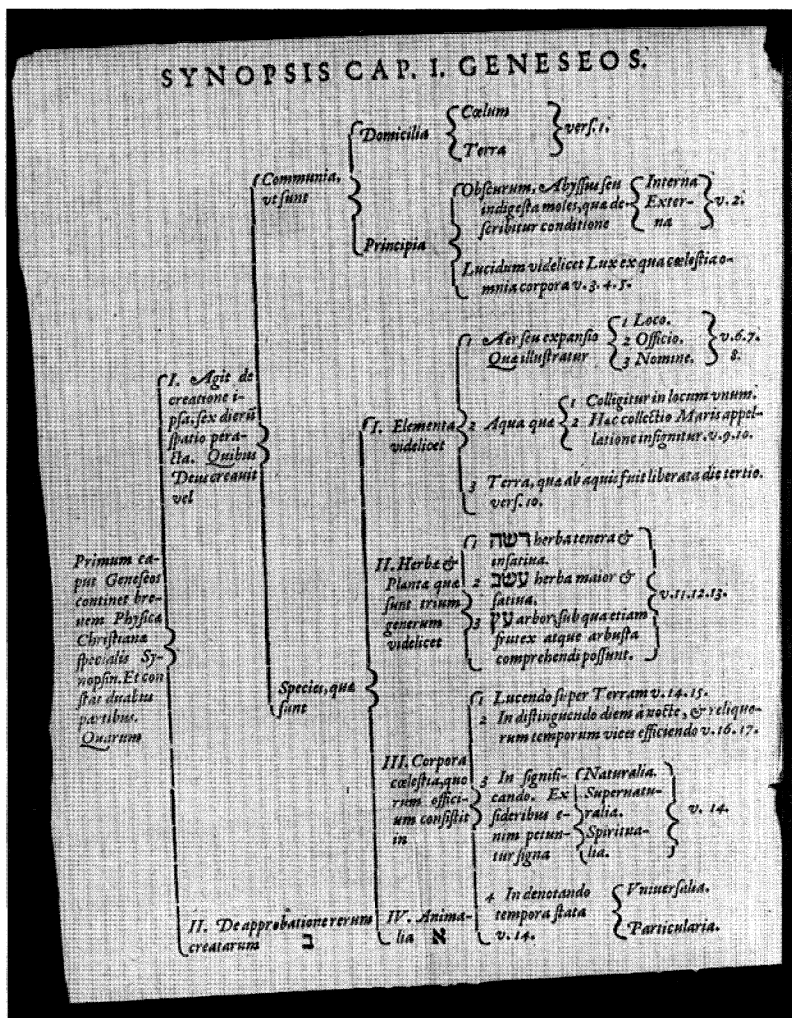 SYNOPSIS CAP. I. GENESEOS.
Primum ca-
put Geneseos
continet bre-
uem Physicæ
Christianæ
specialis Sy-
nopsin. Et con
stat duabus
partibus.
Quarum
I. Agit de
creatione i-
psa, sex dierũ
spatio pera-
cta. Quibus
Deus creauit
vel
Communia,
vt sunt
Domicilia
Cœlum
Terra
vers. 1.
Principia
Obscurum, Abyssus seu
indigesta moles, quæ de-
scribitur conditione
Interna
Exter-
na
v. 2.
Lucidum videlicet Lux ex qua cœlestia o-
mnia corpora v. 3. 4. 5.
Species, quæ
sunt
I. Elementa
videlicet
1 Aer seu expansio
Quæ illustratur
1 Loco.
2 Officio.
3 Nomine.
v. 6. 7.
8.
2 Aqua quæ
1 Colligitur in locum vnum.
2 Hæc collectio Maris appel-
latione insignitur. v. 9. 10.
3 Terra, quæ ab aquis fuit liberata die tertio.
vers. 10.
II. Herbæ &
Plantæ quæ
sunt trium
generum
videlicet
1 רשה herba tenera &
insatiua.
2 עשב herba maior &
satiua.
3 עץ arbor, sub qua etiam
frutex atque arbusta
comprehendi possunt.
v. 11. 12. 13.
III. Corpora
cœlestia, quo
rum offici-
um consistit
in
1 Lucendo super Terram v. 14. 15.
2 In distinguendo diem à nocte, & reliquo-
rum temporum vices efficiendo v. 16. 17.
3 In signifi-
cando. Ex
sideribus e-
nim petun-
tur signa
Naturalia.
Supernatu-
ralia.
Spiritua-
lia.
v. 14.
4 In denotando
tempora stata
v. 14.
Vniuersalia.
Particularia.
IV. Anima-
lia א
II. De approbatione rerum
creatarum ב